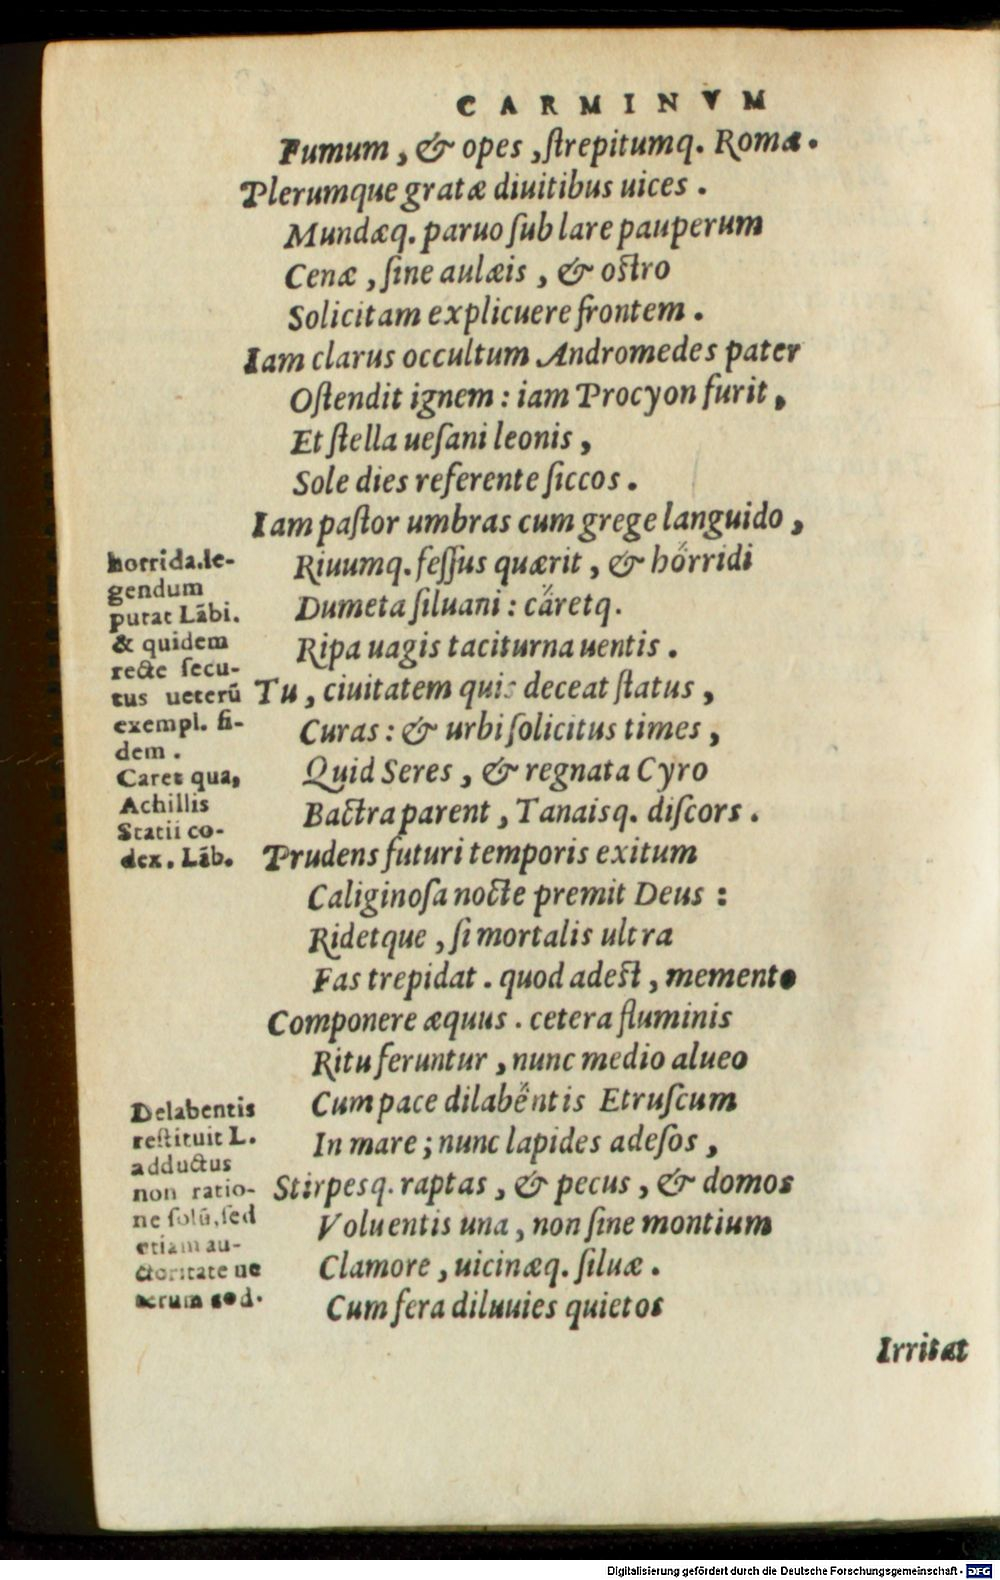 CARMINVM
Fumum, & opes, ſtrepitumq. Romæ.
Plerumque gratæ diuitibus uices.
Mundæq. paruo ſub lare pauperum
Cenæ, ſine aulæis, & oſtro
Solicitam explicuere frontem.
Iam clarus occultum Andromedes pater
Oſtendit ignem: iam Procyon furit,
Et ſtella ueſani leonis,
Sole dies referente ſiccos.
Iam paſtor umbras cum grege languido,
Riuumq. feſſus quærit, & hőrridi
Dumeta ſiluani: ca̋retq.
Ripa uagis taciturna uentis.
Tu, ciuitatem quis deceat ſtatus,
Curas: & urbi ſolicitus times,
Quid Seres, & regnata Cyro
Bactra parent, Tanaisq. diſcors.
Prudens futuri temporis exitum
Caliginoſa nocte premit Deus:
Ridetque, ſi mortalis ultra
Fas trepidat. quod adeſt, memento
Componere æquus. cetera fluminis
Ritu feruntur, nunc medio alueo
Cum pace dilabe̋ntis Etruſcum
In mare; nunc lapides adeſos,
Stirpesq. raptas, & pecus, & domos
Voluentis una, non ſine montium
Clamore, uicinæq. ſiluæ.
Cum fera diluuies quietos
Irritat
horrida.le-
gendum
putat Lãbi.
& quidem
recte ſecu-
tus ueterũ
exempl. fi-
dem.
Caret qua,
Achillis
Statii co-
dex. Lãb.
Delabentis
reſtituit L.
adductus
non ratio-
ne ſolũ, ſed
etiam au-
ctoritate ue
terum cod.
Digitalisierung gefördert durch die Deutsche Forschungsgemeinschaft - DFG